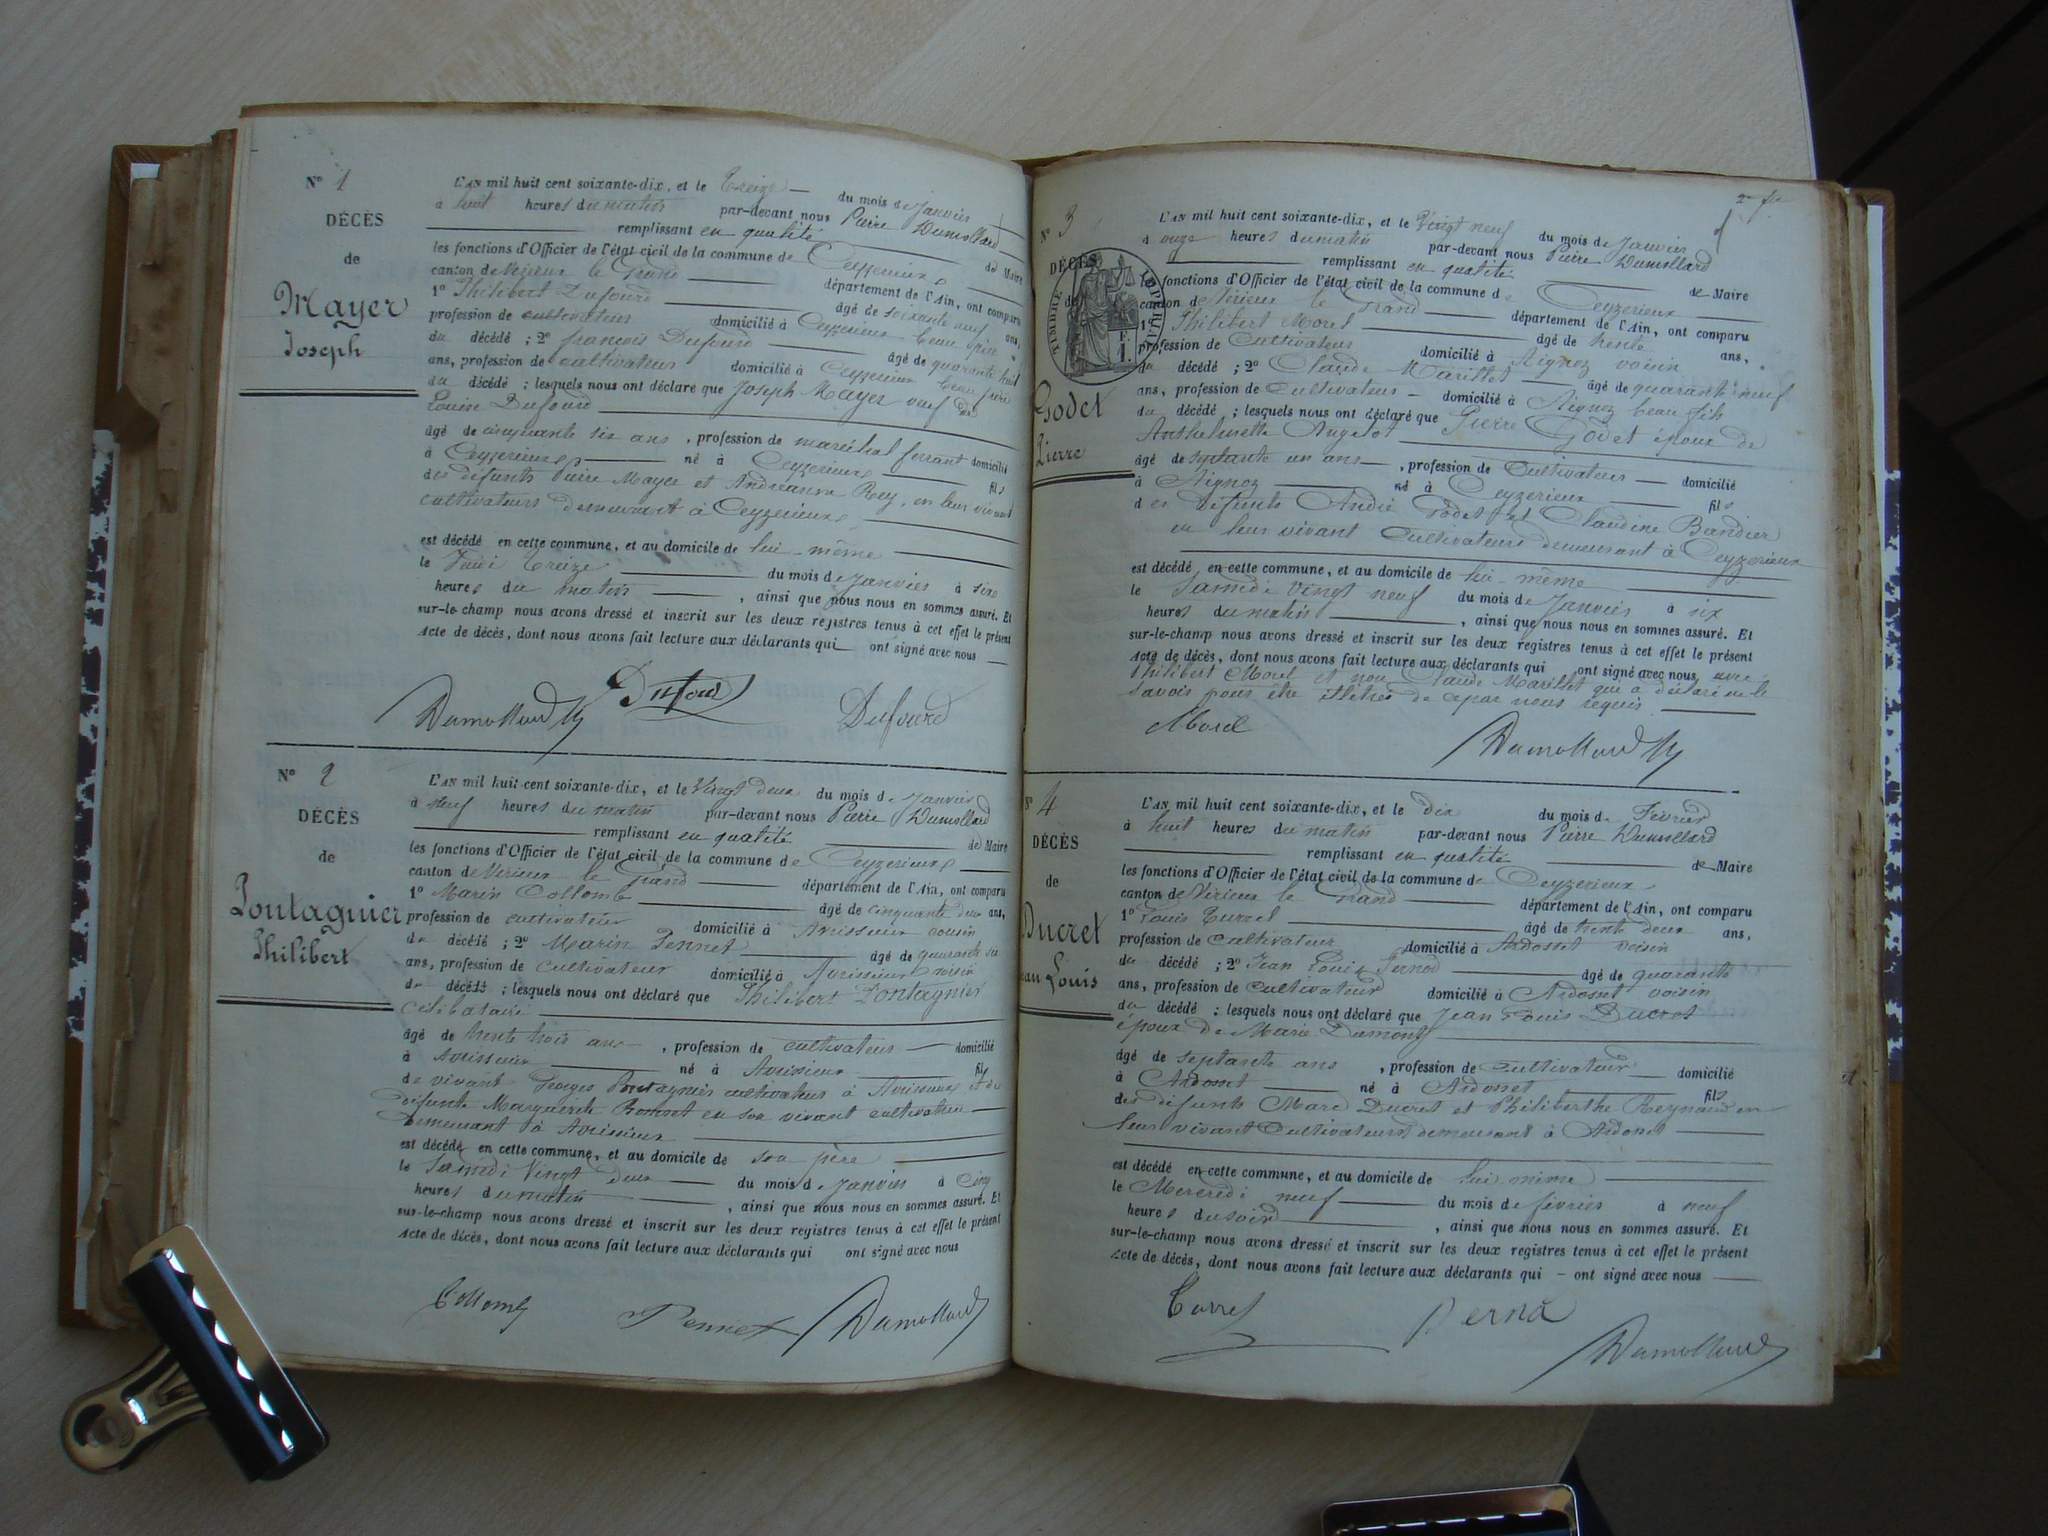 N° 1
DÉCÈS
de
Mayer
Joseph
L'AN mil huit cent soixante-dix, et le Treize du mois de Janvier
à huit heures du matin par-devant nous Pierre Dumollard
remplissant en qualité de Maire
les fonctions d'Officier de l'état civil de la commune de Ceyzerieux
canton de Virieux le Grand département de l'Ain, ont comparu
1° Philibert Dufourd âgé de soixante neuf ans,
profession de cultivateur domicilié à Ceyzerieux beau père
du décédé ; 2° françois Dufourd âgé de quarante huit
ans, profession de cultivateur domicilié à Ceyzerieux beau frère
du décédé ; lesquels nous ont déclaré que Joseph Mayer veuf de
Louise Dufourd
âgé de cinquante six ans, profession de maréchal ferrant domicilié
à Ceyzerieux né à Ceyzerieux fils
des défunts Pierre Mayer et Andréanne Rey, en leur vivant
cultivateurs demeurant à Ceyzerieux
est décédé en cette commune, et au domicile de lui-même
le Jeudi treize du mois de Janvier à six
heures du matin, ainsi que nous nous en sommes assuré. Et
sur-le-champ nous avons dressé et inscrit sur les deux registres tenus à cet effet le présent
acte de décès, dont nous avons fait lecture aux déclarants qui ont signé avec nous
Dumollard Dufourd Dufourd
N° 2
DÉCÈS
de
Pontagnier
Philibert
L'AN mil huit cent soixante-dix, et le Vingt deux du mois de Janvier
à neuf heures du matin par-devant nous Pierre Dumollard
remplissant en qualité de Maire
les fonctions d'Officier de l'état civil de la commune de Ceyzerieux
canton de Virieux le Grand département de l'Ain, ont comparu
1° Marin Collomb âgé de cinquante deux ans,
profession de cultivateur domicilié à Avrissieux cousin
du décédé ; 2° Marin Pennet âgé de quarante six
ans, profession de cultivateur domicilié à Avrissieux voisin
du décédé ; lesquels nous ont déclaré que Philibert Pontagnier
célibataire
âgé de trente trois ans, profession de cultivateur domicilié
à Avrissieux né à Avrissieux fils
de vivant Georges Pontagnier cultivateur à Avrissieux et de
défunte Marguerite en son vivant cultivatrice
demeurant à Avrissieux
est décédé en cette commune, et au domicile de son père
le Samedi Vingt deux du mois de Janvier à Cinq
heures du matin, ainsi que nous nous en sommes assuré. Et
sur-le-champ nous avons dressé et inscrit sur les deux registres tenus à cet effet le présent
acte de décès, dont nous avons fait lecture aux déclarants qui ont signé avec nous
Collomb Pennet Dumollard
N° 3
DÉCÈS
TIMBRE IMPÉRIAL
Godet
Pierre
L'AN mil huit cent soixante-dix, et le Vingt neuf du mois de Janvier
à onze heures du matin par-devant nous Pierre Dumollard
remplissant en qualité de Maire
les fonctions d'Officier de l'état civil de la commune de Ceyzerieux
canton de Virieux le Grand département de l'Ain, ont comparu
1° Philibert Morel âgé de trente ans,
profession de Cultivateur domicilié à Aignoz voisin
du décédé ; 2° Claude Marillet âgé de quarante neuf
ans, profession de Cultivateur domicilié à Aignoz beau fils
du décédé ; lesquels nous ont déclaré que Pierre Godet époux de
Anthelmette Angelot
âgé de septante un ans, profession de Cultivateur domicilié
à Aignoz né à Ceyzerieux fils
des défunts André Godet et Claudine Bandier
en leur vivant Cultivateurs demeurant à Ceyzerieux
est décédé en cette commune, et au domicile de lui-même
le Samedi Vingt neuf du mois de Janvier à six
heures du matin, ainsi que nous nous en sommes assuré. Et
sur-le-champ nous avons dressé et inscrit sur les deux registres tenus à cet effet le présent
acte de décès, dont nous avons fait lecture aux déclarants qui ont signé avec nous avec
Philibert Morel et non Claude Marillet que a déclaré ne le
savoir pour être illétré de ce par nous requis
Morel Dumollard
N° 4
DÉCÈS
de
Ducret
Jean Louis
L'AN mil huit cent soixante-dix, et le dix du mois de Février
à huit heures du matin par-devant nous Pierre Dumollard
remplissant en qualité de Maire
les fonctions d'Officier de l'état civil de la commune de Ceyzerieux
canton de Virieux le Grand département de l'Ain, ont comparu
1° Louis âgé de trente deux ans,
profession de Cultivateur domicilié à Ardosset voisin
du décédé ; 2° Jean Louis Pernod âgé de quarante
ans, profession de Cultivateur domicilié à Ardosset voisin
du décédé ; lesquels nous ont déclaré que Jean Louis Ducret
époux de Marie Dumont
âgé de septante ans, profession de Cultivateur domicilié
à Ardosset né à Ardosset fils
des défunts Marc Ducret et Philiberthe Reynaud en
leur vivant Cultivateurs demeurant à Ardosset
est décédé en cette commune, et au domicile de lui-même
le Mercredi neuf du mois de février à neuf
heures du soir, ainsi que nous nous en sommes assuré. Et
sur-le-champ nous avons dressé et inscrit sur les deux registres tenus à cet effet le présent
acte de décès, dont nous avons fait lecture aux déclarants qui ont signé avec nous
Perná Dumollard